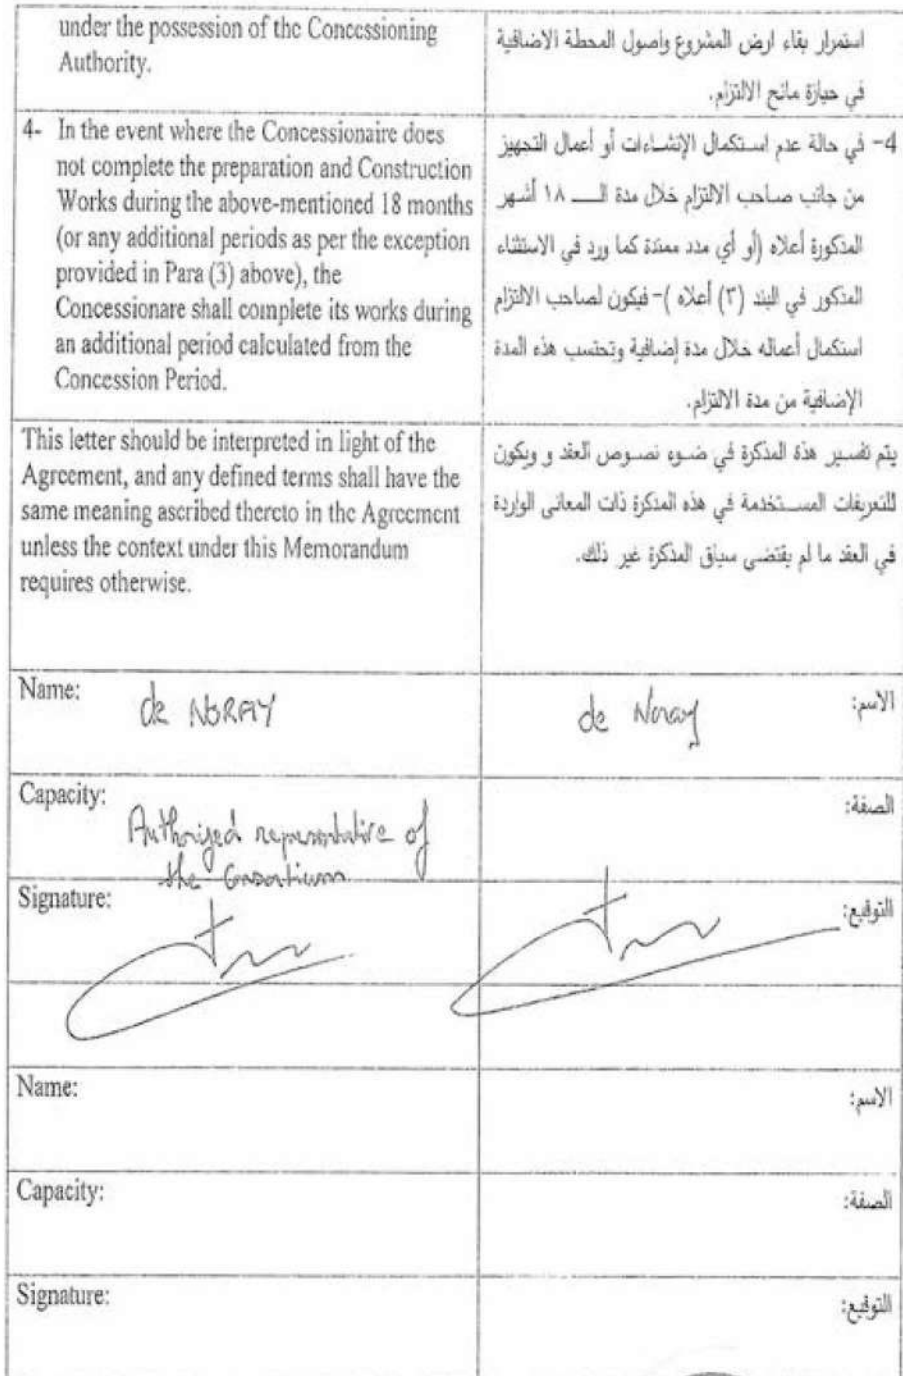 under the possession of the Concessioning
Authority.
استمرار بقاء ارض المشروع واصول المحطة الاضافية
في حيازة مانح الالتزام.
4- In the event where the Concessionaire does
not complete the preparation and Construction
Works during the above-mentioned 18 months
(or any additional periods as per the exception
provided in Para (3) above), the
Concessionare shall complete its works during
an additional period calculated from the
Concession Period.
4- في حالة عدم استكمال الإنشاءات أو أعمال التجهيز
من جانب صاحب الالتزام خلال مدة الـ ١٨ أشهر
المذكورة أعلاه (أو أي مدد ممتدة كما ورد في الاستثناء
المذكور في البند (٣) أعلاه )- فيكون لصاحب الالتزام
استكمال أعماله خلال مدة إضافية وتحتسب هذه المدة
الإضافية من مدة الالتزام.
This letter should be interpreted in light of the
Agreement, and any defined terms shall have the
same meaning ascribed thereto in the Agreement
unless the context under this Memorandum
requires otherwise.
يتم تفسير هذة المذكرة في ضوء نصوص العقد و ويكون
للتعريفات المستخدمة في هذه المذكرة ذات المعانى الواردة
في العقد ما لم يقتضى سياق المذكرة غير ذلك.
Name: de NORAY
de Noray الاسم:
Capacity: Authorized representative of
the Consortium
الصفة:
Signature:
التوقيع:
Name:
الاسم:
Capacity:
الصفة:
Signature:
التوقيع: